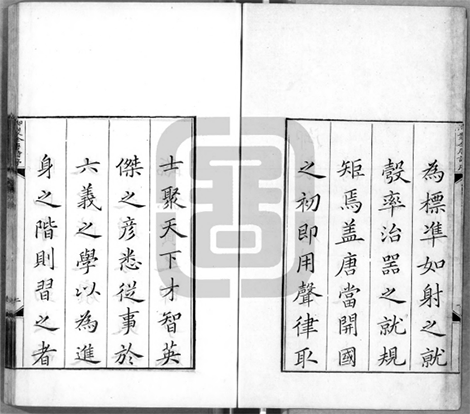 為標準如射之就
彀率治器之就規
矩焉盖唐當開國
之初即用聲律取
士聚天下才智英
傑之彦悉従事於
六義之學以為進
身之階則習之者